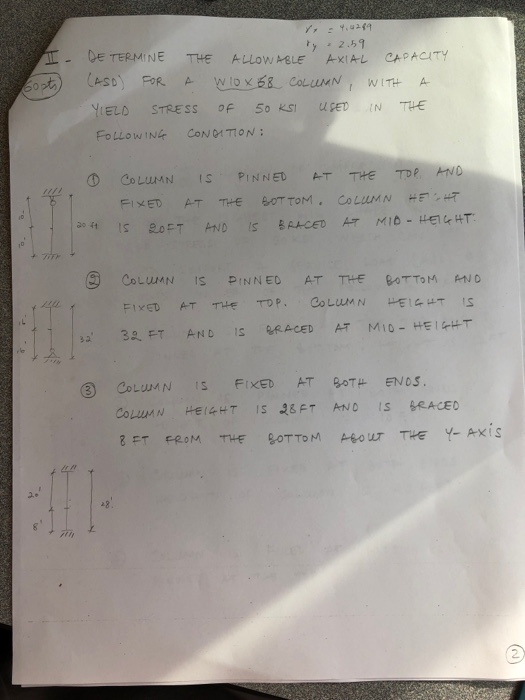 ry = 2.59
II - DETERMINE THE ALLOWABLE AXIAL CAPACITY
(ASD) FOR A W10 x 68 COLUMN, WITH A
YIELD STRESS OF 50 KSI USED IN THE
FOLLOWING CONDITION:
① COLUMN IS PINNED AT THE TOP AND
FIXED AT THE BOTTOM. COLUMN HEIGHT
IS 20FT AND IS BRACED AT MID-HEIGHT.
20 ft
② COLUMN IS PINNED AT THE BOTTOM AND
FIXED AT THE TOP. COLUMN HEIGHT IS
32 FT AND IS BRACED AT MID-HEIGHT
16'
16'
32'
③ COLUMN IS FIXED AT BOTH ENDS.
COLUMN HEIGHT IS 28FT AND IS BRACED
8 FT FROM THE BOTTOM ABOUT THE Y-AXIS
20'
8'
28'
2